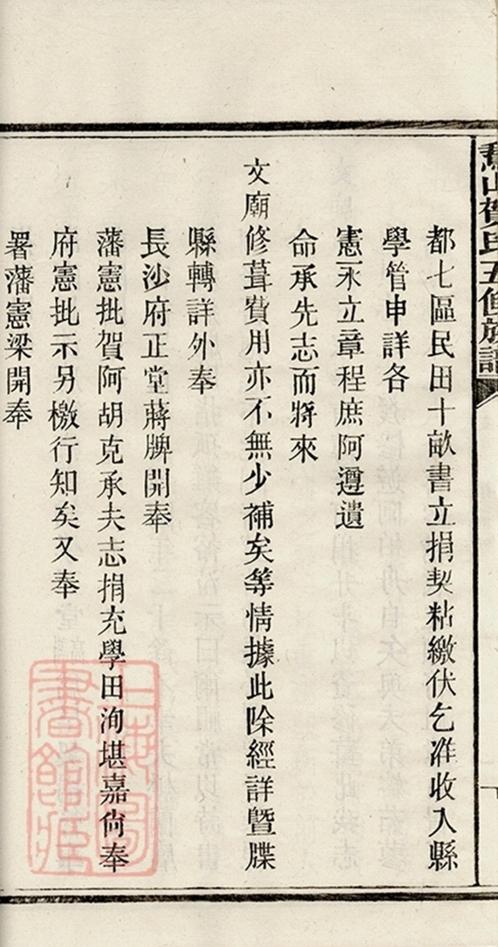 都七區民田十畝書立捐契粘繳伏乞准收入縣
學管申詳各
憲永立章程庶阿遵遺
命承先志而將來
文廟修葺費用亦不無少補矣等情據此除經詳暨牒
縣轉詳外奉
長沙府正堂蔣牌開奉
藩憲批賀阿胡克承夫志捐充學田洵堪嘉尙奉
府憲批示另檄行知矣又奉
署藩憲梁開奉
山賀氏五修族譜
上海圖書館藏